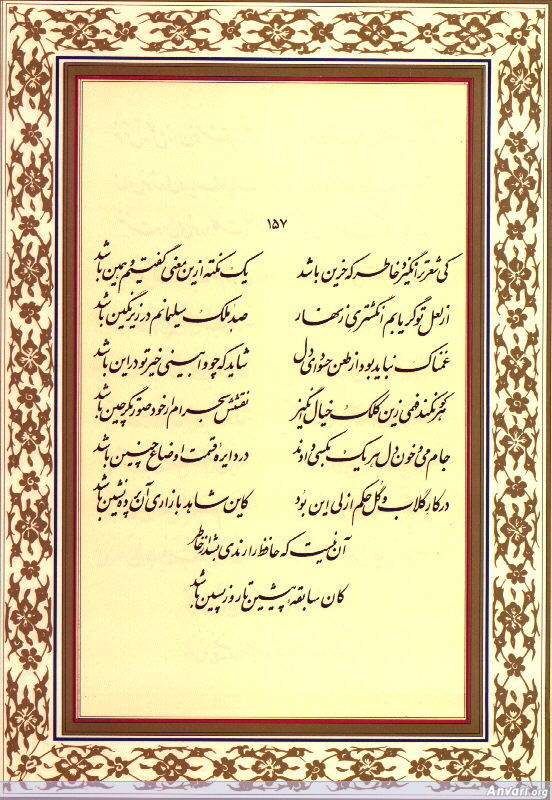 ۱۵۷
کی شعر تر انگیزد خاطر که حزین باشد یک نکته ازین معنی گفتیم و همین باشد
از لعل تو گر یابم انگشتری زنهار صد ملک سلیمانم در زیر نگین باشد
غمناک نباید بود از طعن حسود ای دل شاید که چو وا بینی خیر تو در این باشد
هر کو نکند فهمی زین کلک خیال انگیز نقشش بحرام ار خود صورتگر چین باشد
جام می و خون دل هر یک بکسی دادند در دایره قسمت اوضاع چنین باشد
در کار گلاب و گل حکم ازلی این بود کاین شاهد بازاری وان پرده نشین باشد
آن نیست که حافظ را رندی بشد از خاطر
کان سابقه پیشین تا روز پسین باشد
Anvari.org